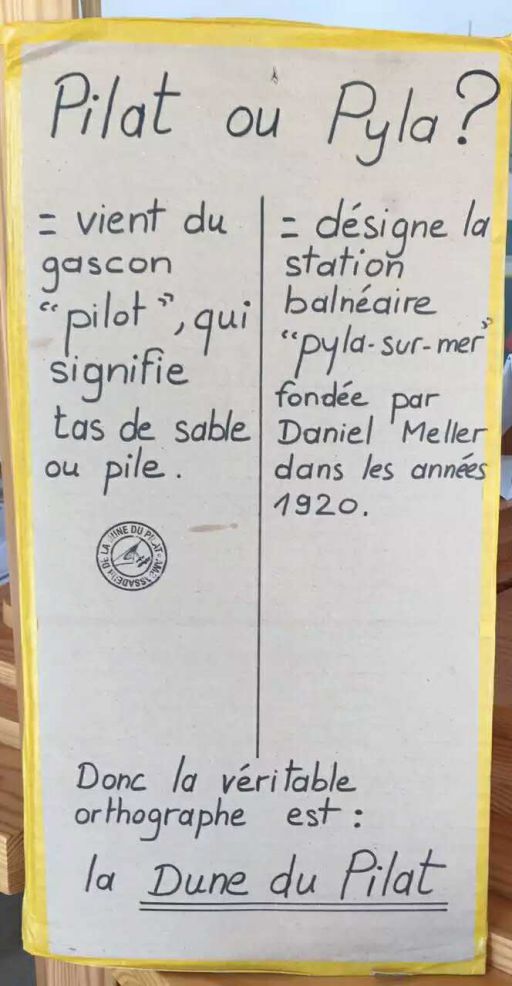 Pilat ou Pyla?
= vient du
gascon
"pilot", qui
signifie
tas de sable
ou pile.
= désigne la
station
balnéaire
"pyla-sur-mer"
fondée par
Daniel Meller
dans les années
1920.
DE LA DUNE DU PILAT
Donc la véritable
orthographe est :
la Dune du Pilat